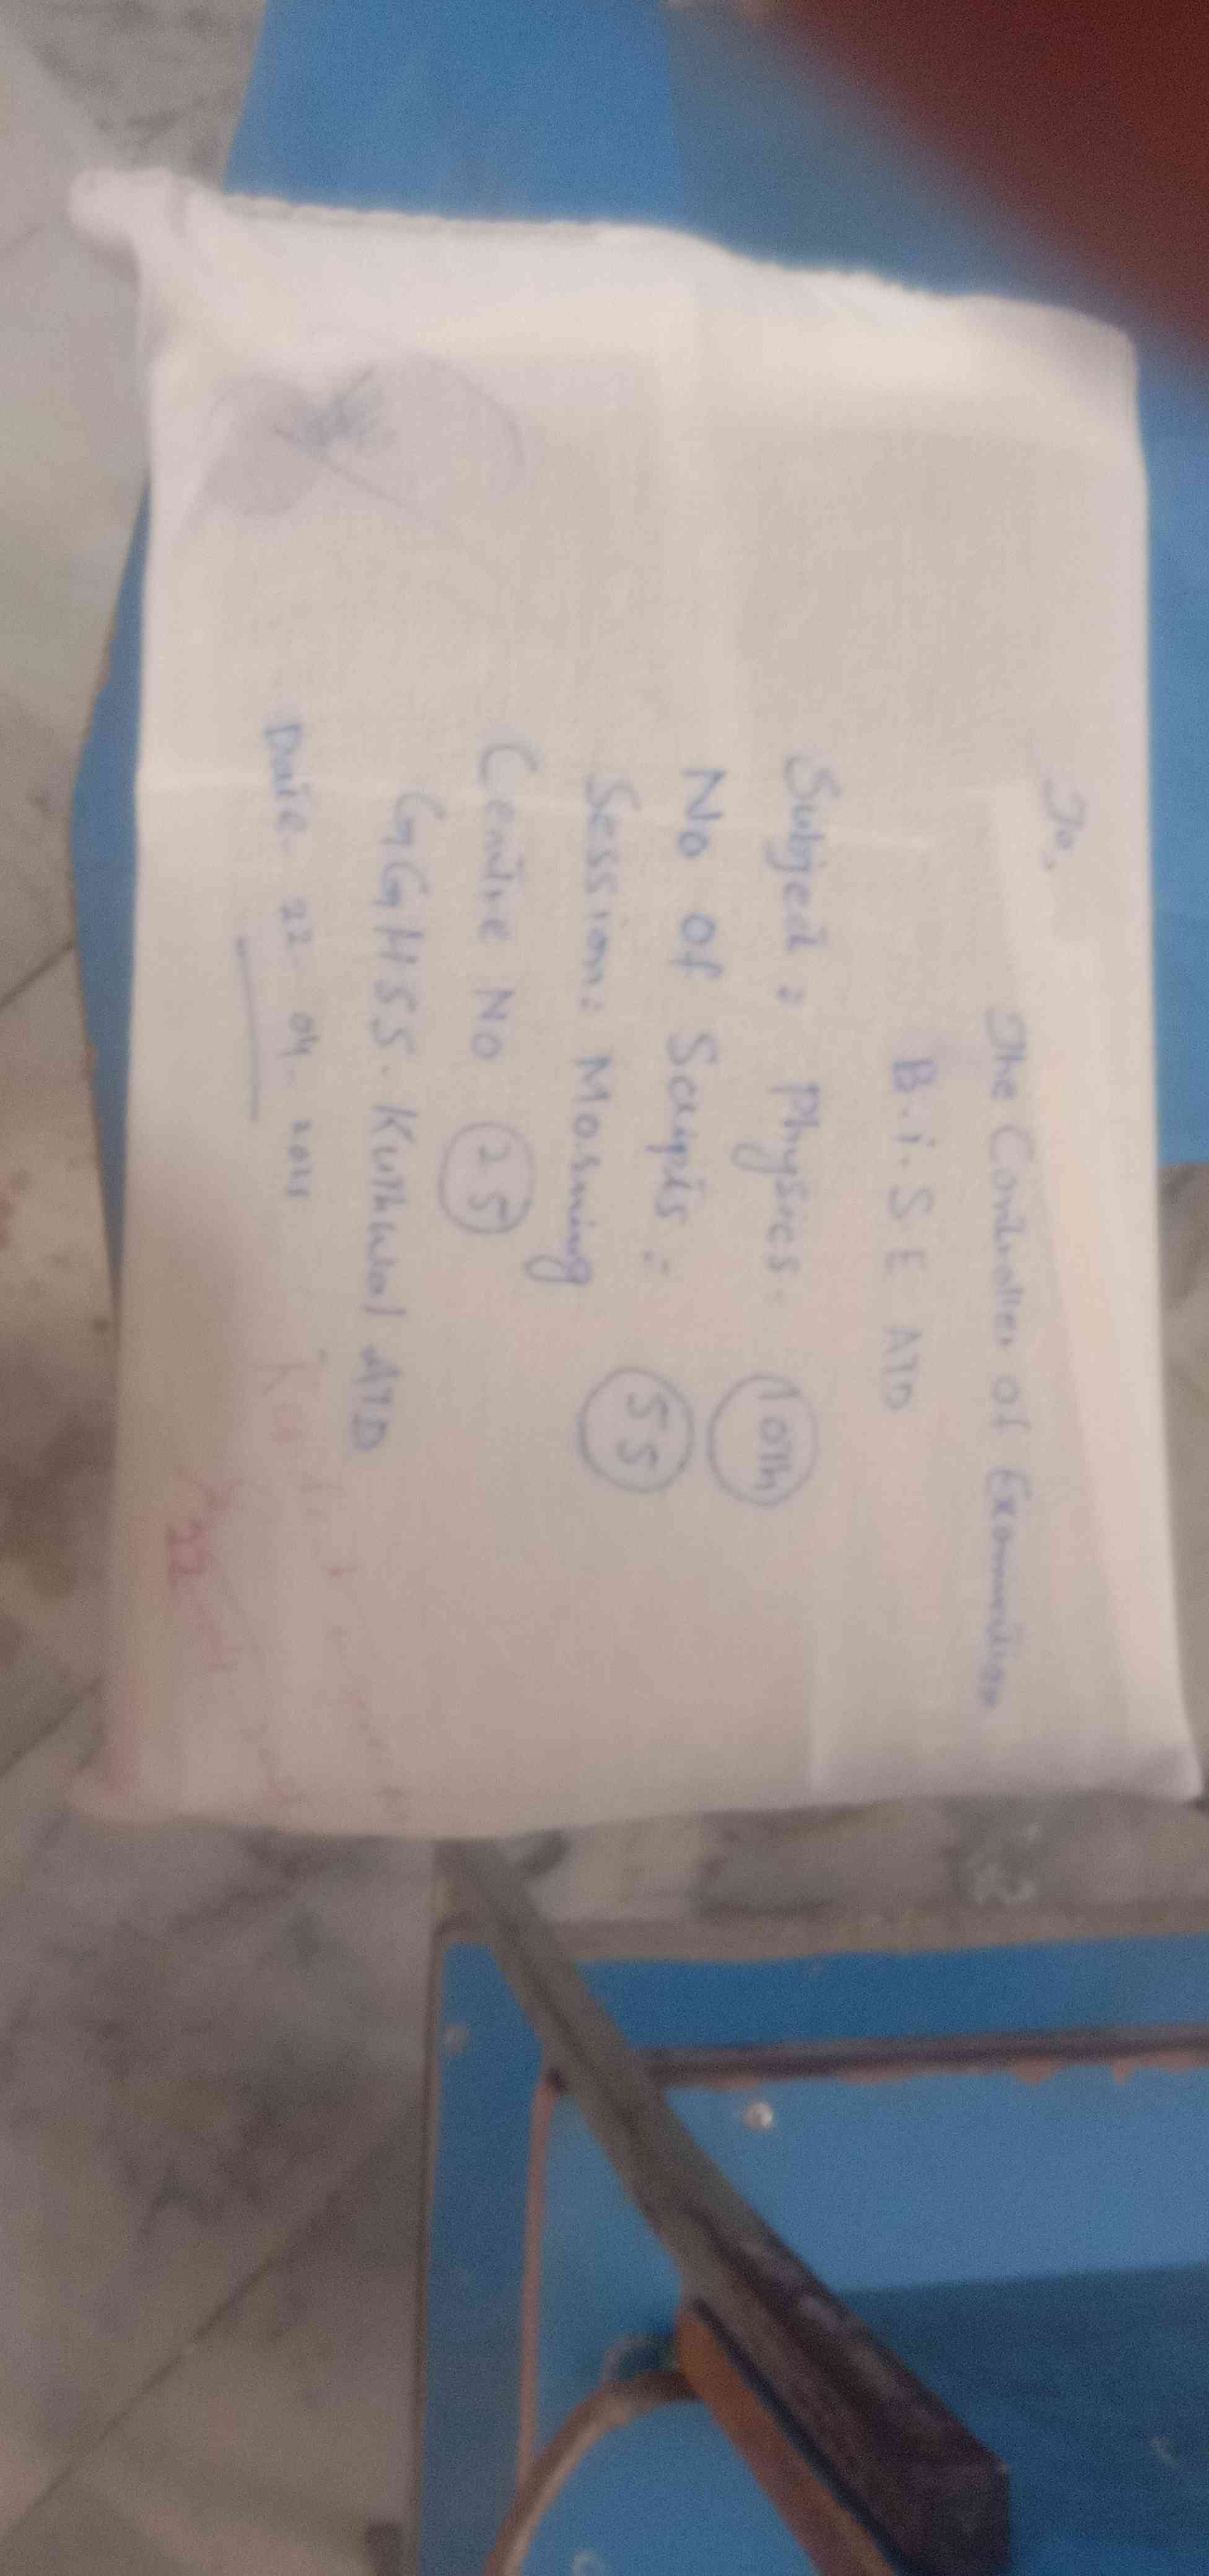 To,
The Controller of Examination
B.i.S.E ATD
Subject : Physics. 10Th
No of Scripts : 55
Session: Morning
Centre No 25
GGHSS. Kuthwal ATD
Date 22 04